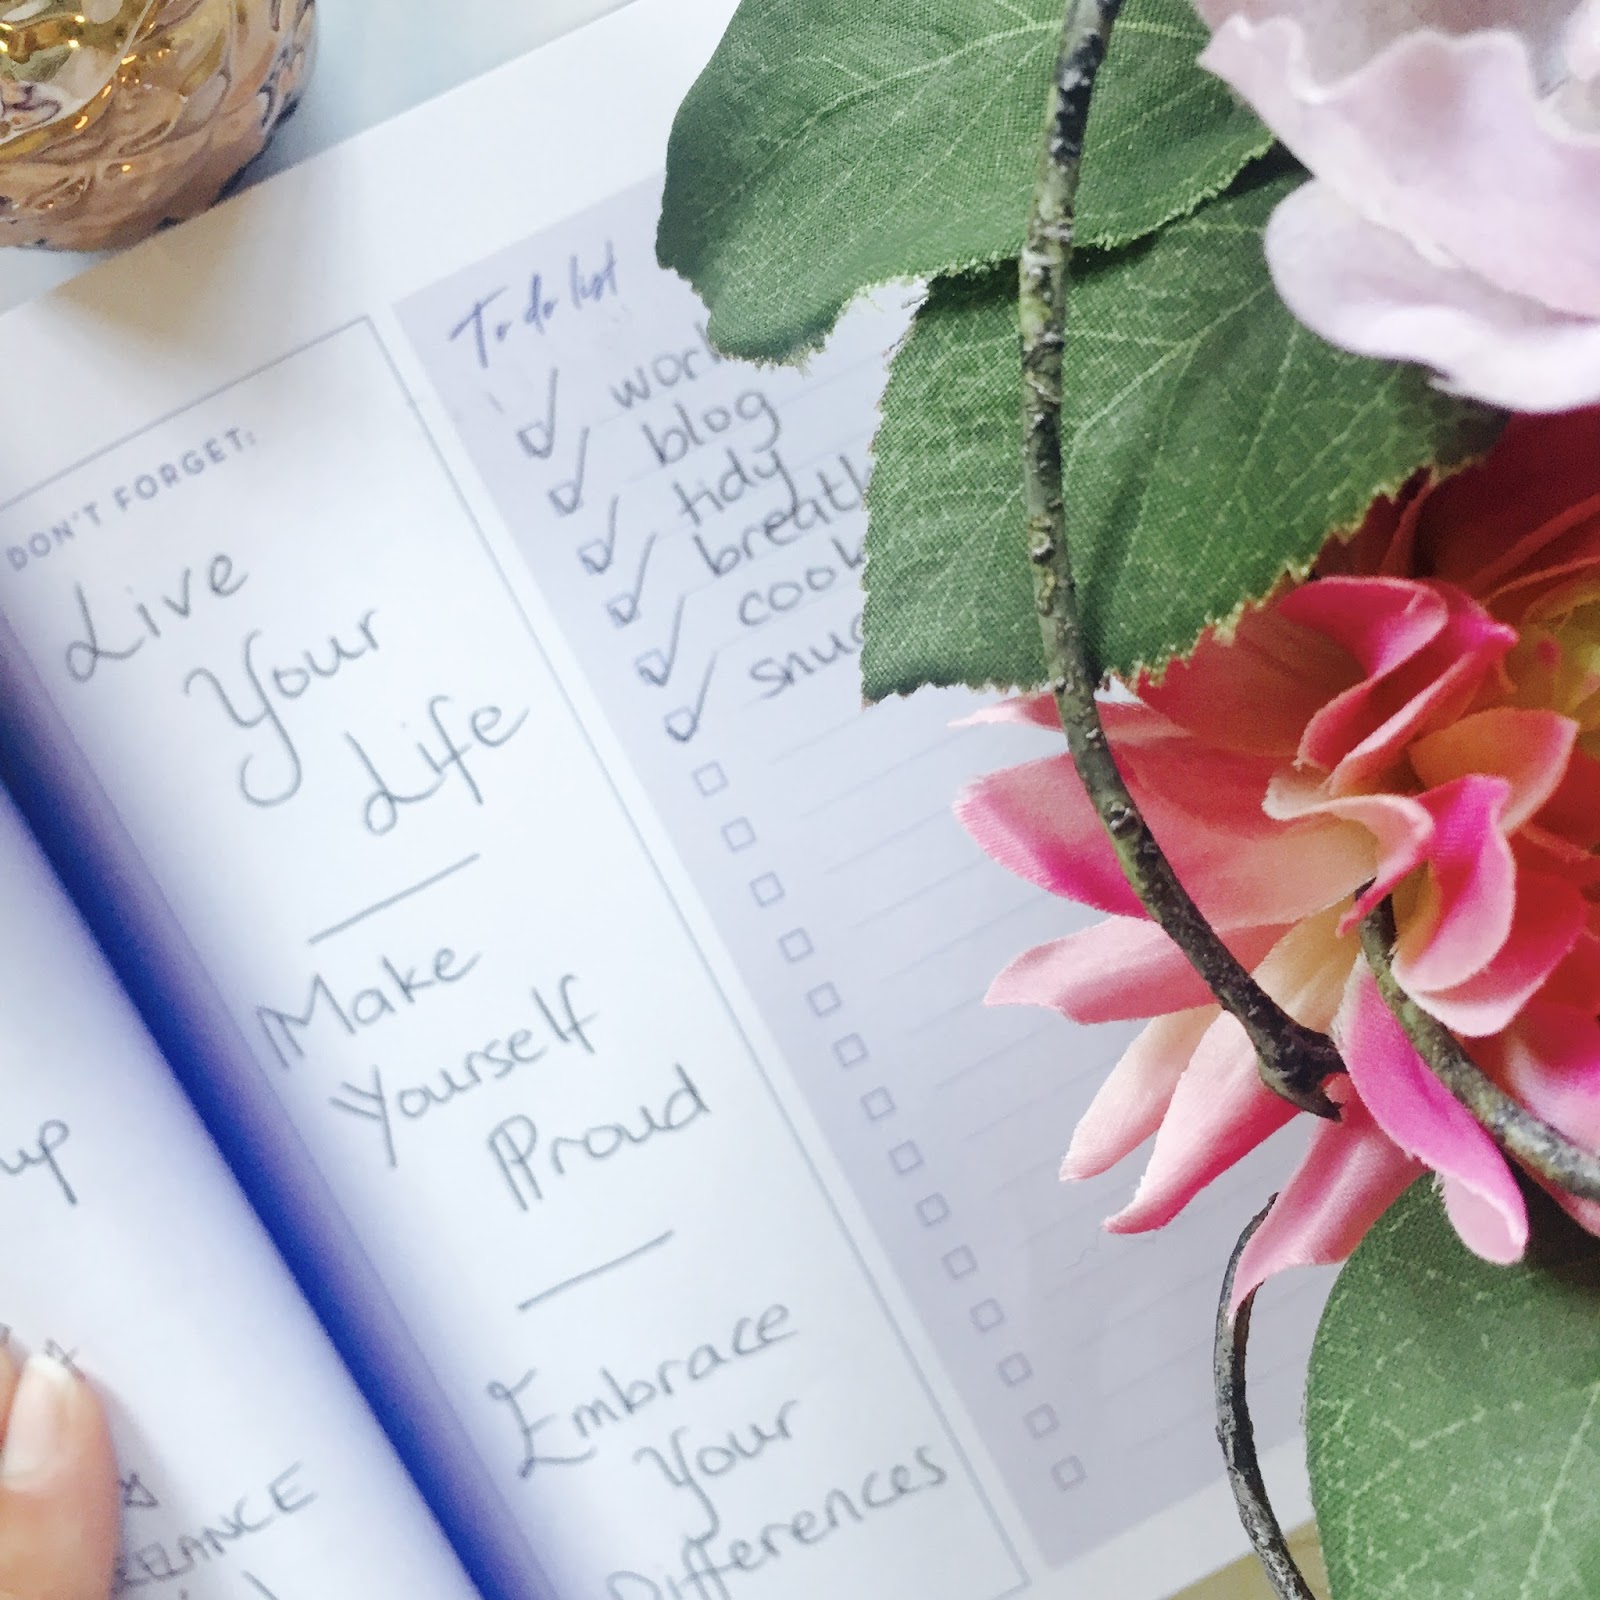 up
DON'T FORGET:
Live
Your
Life
Make
Yourself
Proud
Embrace
Your
Differences
To do list
work
blog
tidy
cook